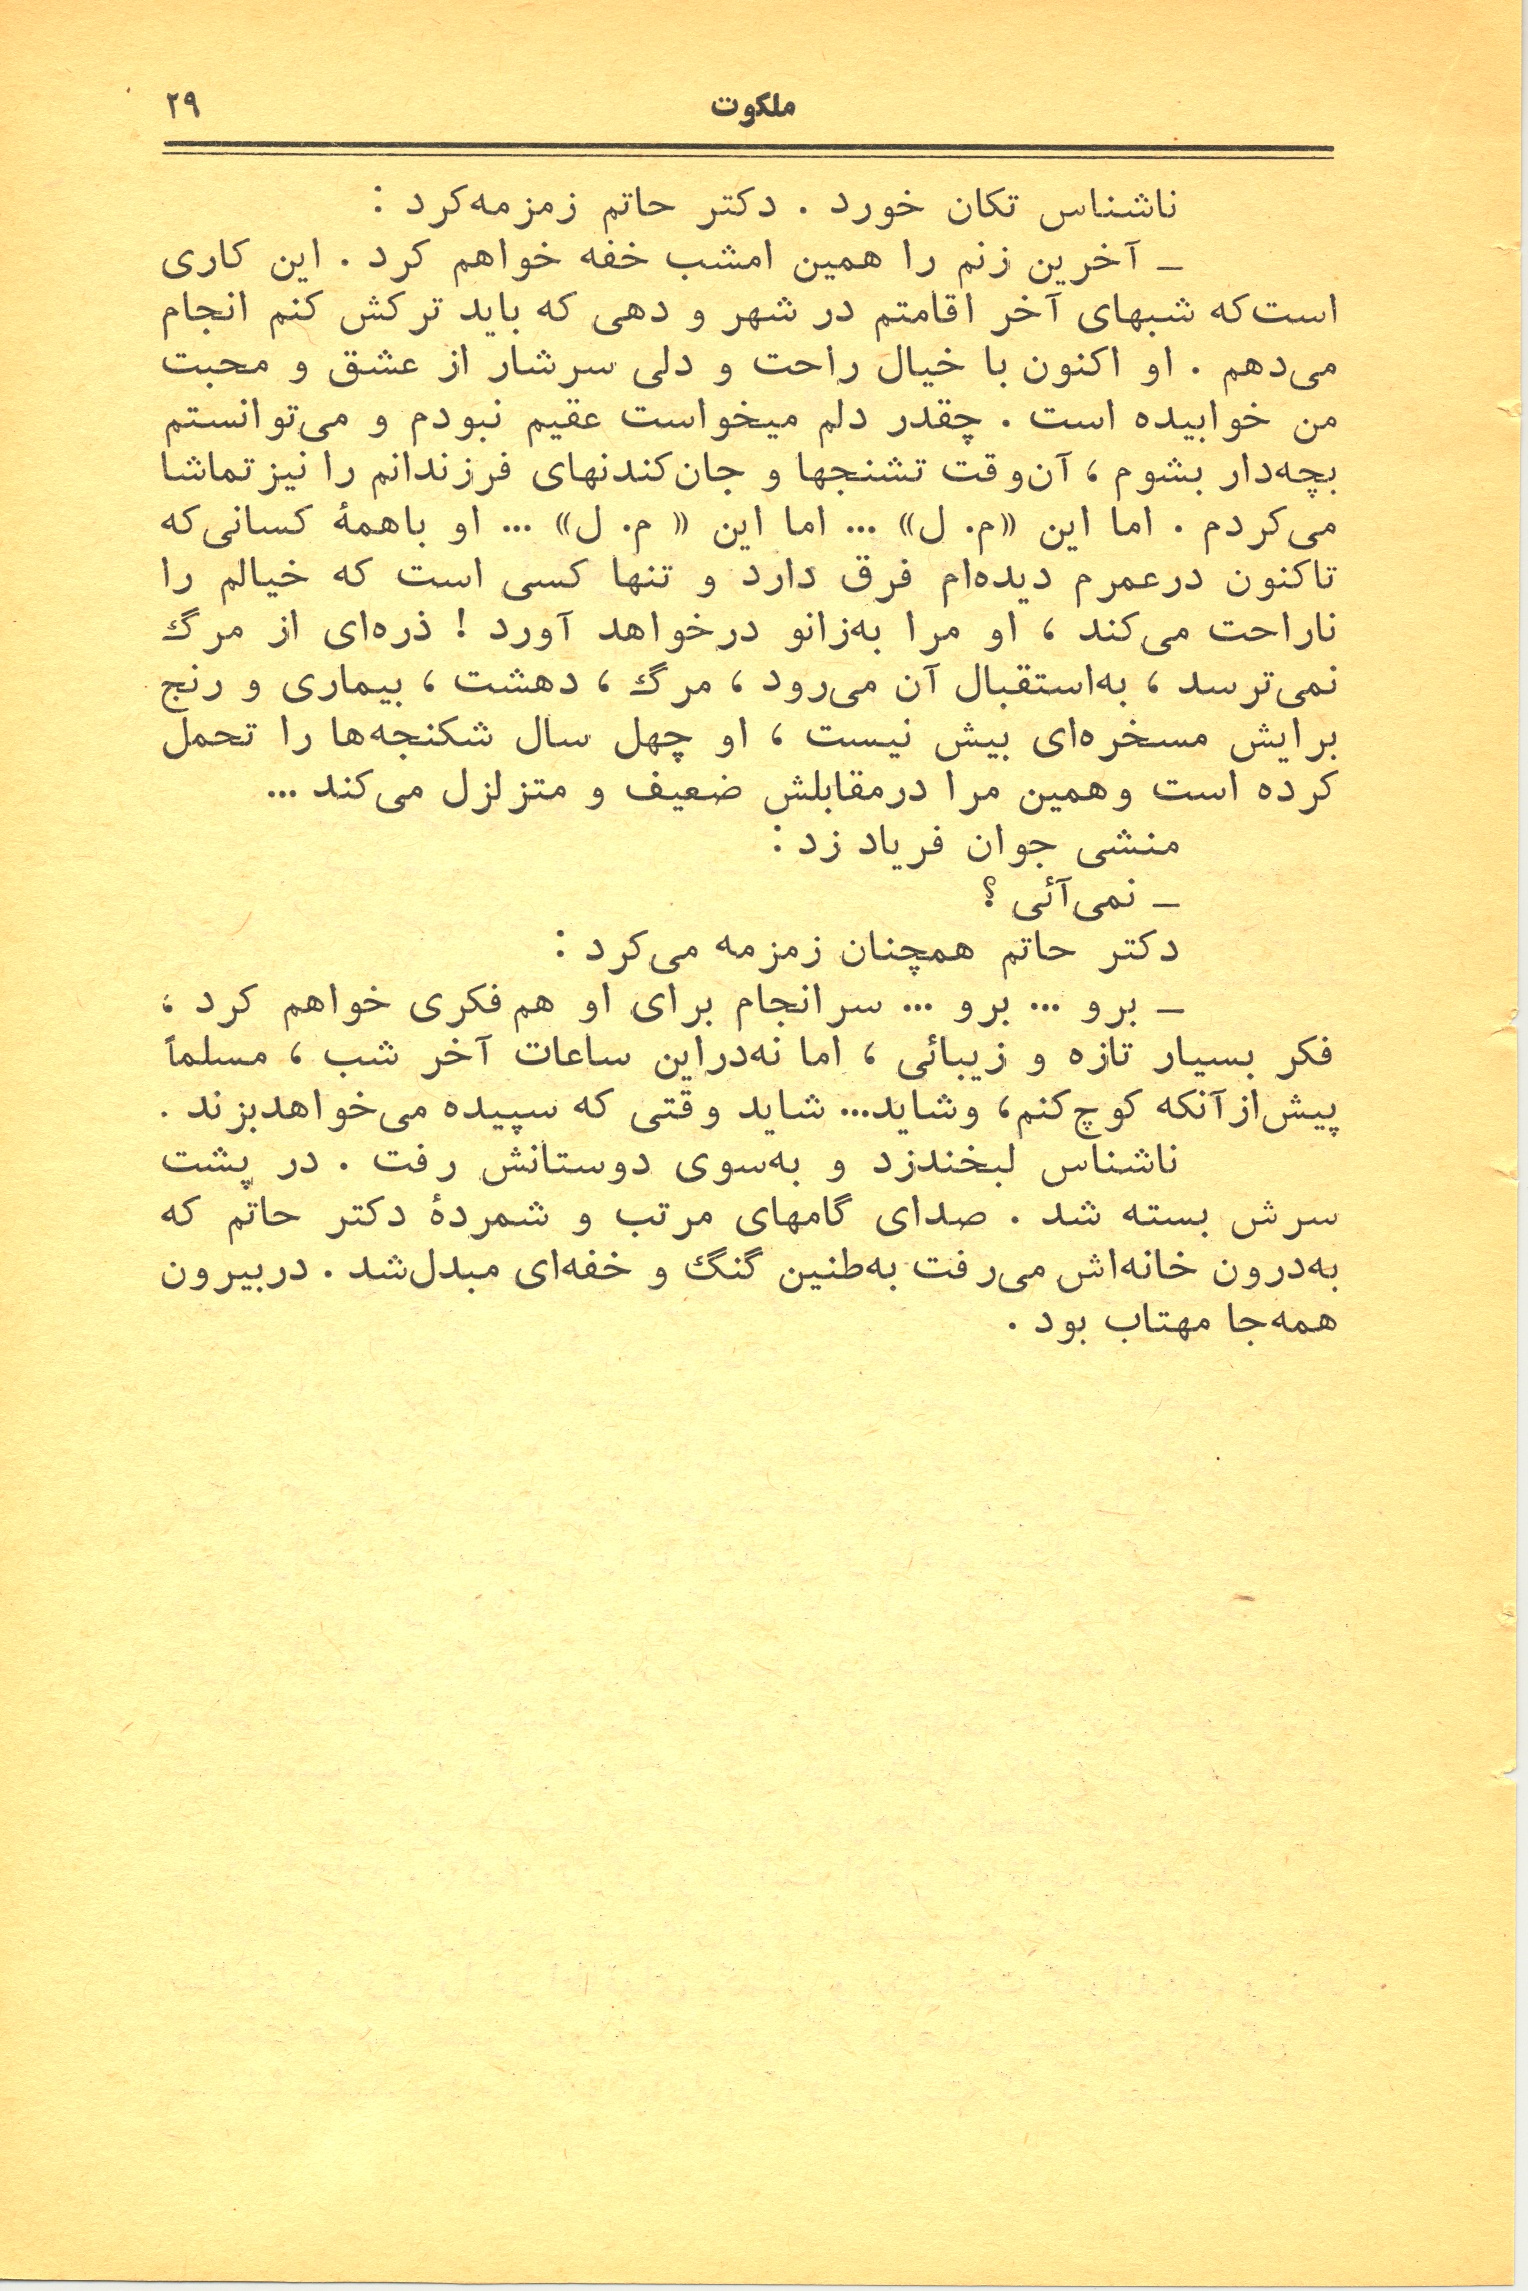 ملکوت ۲۹
ناشناس تکان خورد . دکتر حاتم زمزمه‌کرد :
ــ آخرین زنم را همین امشب خفه خواهم کرد . این کاری
است‌که شبهای آخر اقامتم در شهر و دهی که باید ترکش کنم انجام
می‌دهم . او اکنون با خیال راحت و دلی سرشار از عشق و محبت
من خوابیده است . چقدر دلم میخواست عقیم نبودم و می‌توانستم
بچه‌دار بشوم ، آن‌وقت تشنجها و جان‌کندنهای فرزندانم را نیز تماشا
می‌کردم . اما این «م. ل» ... اما این « م. ل» ... او باهمهٔ کسانی‌که
تاکنون درعمرم دیده‌ام فرق دارد و تنها کسی است که خیالم را
ناراحت می‌کند ، او مرا به‌زانو درخواهد آورد ! ذره‌ای از مرگ
نمی‌ترسد ، به‌استقبال آن می‌رود ، مرگ ، دهشت ، بیماری و رنج
برایش مسخره‌ای بیش نیست ، او چهل سال شکنجه‌ها را تحمل
کرده است وهمین مرا درمقابلش ضعیف و متزلزل می‌کند ...
منشی جوان فریاد زد :
ــ نمی‌آئی ؟
دکتر حاتم همچنان زمزمه می‌کرد :
ــ برو ... برو ... سرانجام برای او هم‌فکری خواهم کرد ،
فکر بسیار تازه و زیبائی ، اما نه‌دراین ساعات آخر شب ، مسلماً
پیش‌ازآنکه کوچ‌کنم، وشاید... شاید وقتی که سپیده می‌خواهدبزند .
ناشناس لبخندزد و به‌سوی دوستانش رفت . در پشت
سرش بسته شد . صدای گامهای مرتب و شمردهٔ دکتر حاتم که
به‌درون خانه‌اش می‌رفت به‌طنین گنگ و خفه‌ای مبدل‌شد . دربیرون
همه‌جا مهتاب بود .